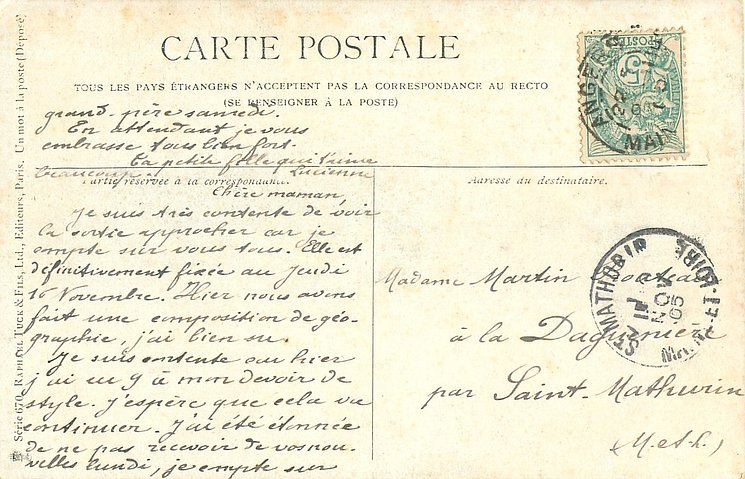 CARTE POSTALE
TOUS LES PAYS ÉTRANGERS N'ACCEPTENT PAS LA CORRESPONDANCE AU RECTO
(SE RENSEIGNER À LA POSTE)
grand-père samedi.
En attendant je vous
embrasse tous bien fort.
Ta petite fille qui t'aime
beaucoup. Lucienne
Partie réservée à la correspondance.
Chère maman,
Je suis très contente de voir
la sortie approcher car je
compte sur vous tous. Elle est
définitivement fixée au Jeudi
16 Novembre. Hier nous avons
fait une composition de géo-
graphie, j'ai bien su.
Je suis contente car hier
j'ai eu 9 à mon devoir de
style. J'espère que cela va
continuer. J'ai été étonnée
de ne pas recevoir de vos nou-
velles lundi, je compte sur
Adresse du destinataire.
Madame Martin
à la Daguenière
par Saint-Mathurin
(M-et-L.)
Série 670. RAPHAEL TUCK & FILS, Ltd., Editeurs, Paris. Un mot à la poste (Déposé)
POSTES
5
ANGERS
ST MATHURIN
NOV
05
MAINE-ET-LOIRE